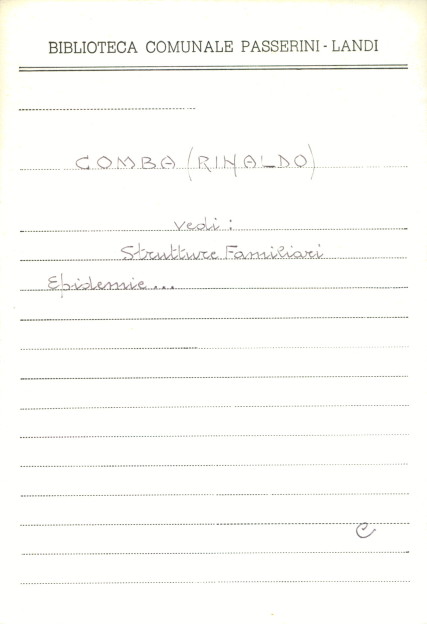 BIBLIOTECA COMUNALE PASSERINI - LANDI
COMBA (RINALDO)
vedi :
Strutture Familiari
Epidemie...
C